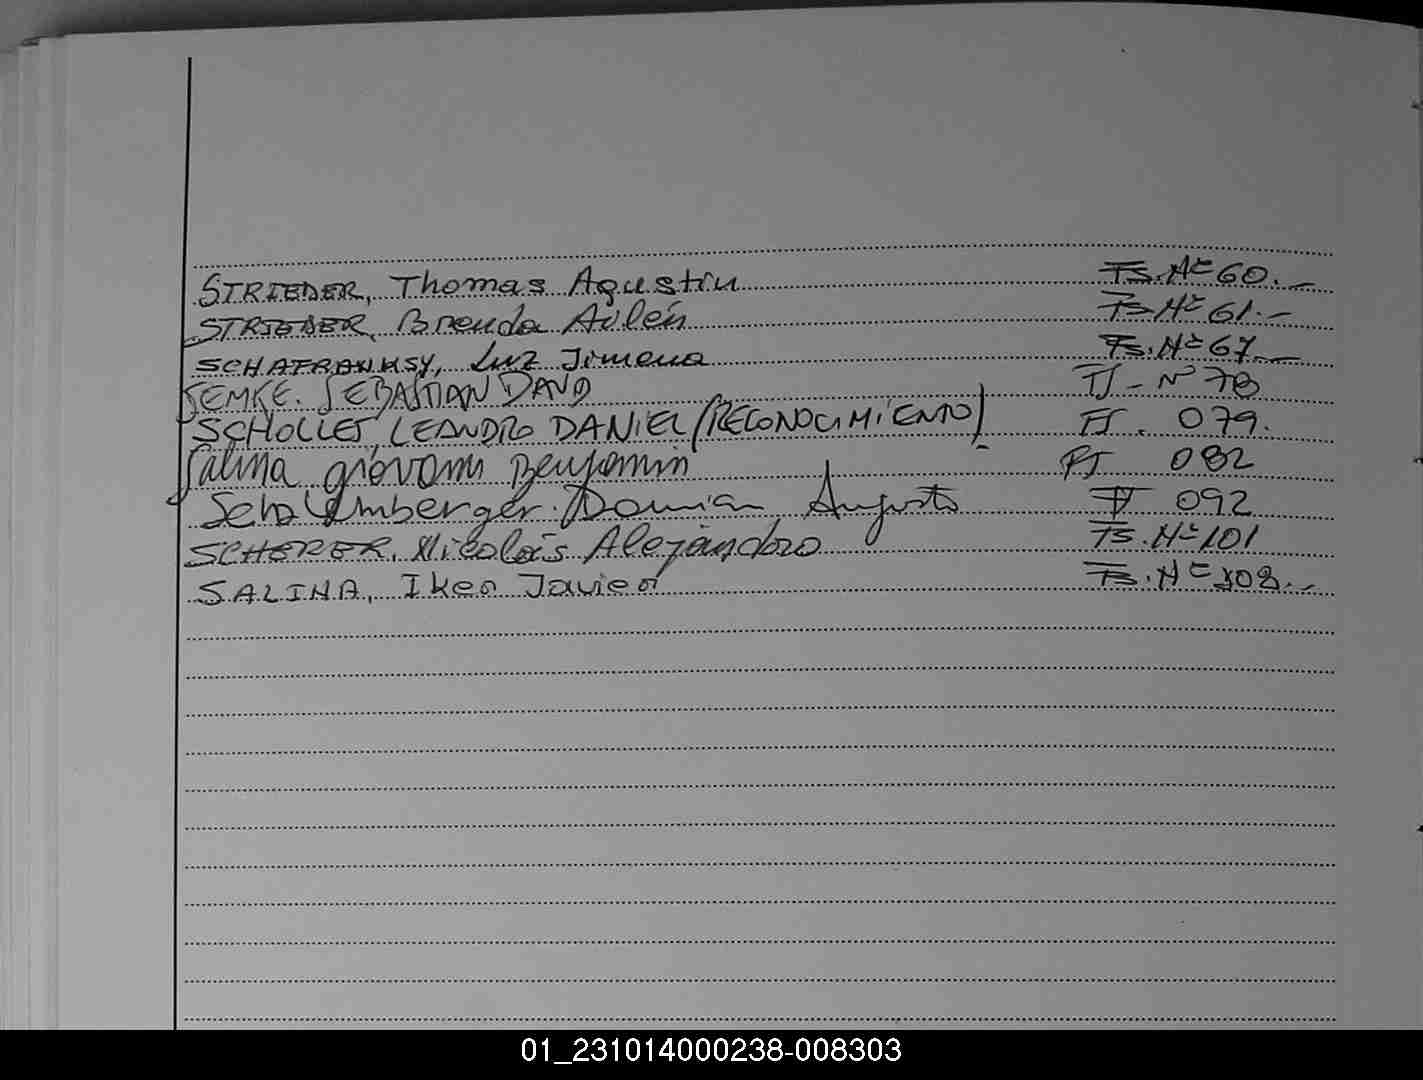 STRIEDER, Thomas Agustin Fs. Nº 60.-
STRIEDER, Brenda Aylén Fs Nº 61.-
SCHAFRANKSY, Luz Jimena Fs. Nº 67.-
SEMKE. SEBASTIAN DAVID FS - Nº 78
SCHOLLES, LEANDRO DANIEL (RECONOCIMIENTO) FS. 079.
Salina giovanni Benjamin FS 082
Schaumberger. Damian Augusto 092
SCHERER, Nicolás Alejandro Fs. Nº 101
SALINA, Iker Javier Fs. Nº 108.-
01_231014000238-008303